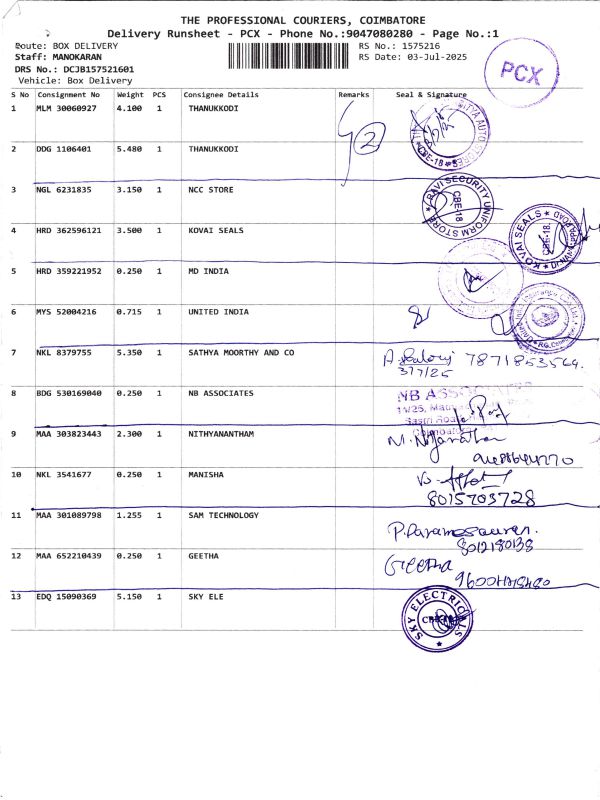 THE PROFESSIONAL COURIERS, COIMBATORE
Delivery Runsheet - PCX - Phone No.:9047080280 - Page No.:1
Route: BOX DELIVERY
RS No.: 1575216
Staff: MANOKARAN
RS Date: 03-Jul-2025
DRS No.: DCJB157521601
Vehicle: Box Delivery
PCX
S No Consignment No Weight PCS Consignee Details Remarks Seal & Signature
1 MLM 30060927 4.100 1 THANUKKODI
2
2 DDG 1106401 5.480 1 THANUKKODI
CBE-18
3 NGL 6231835 3.150 1 NCC STORE
RAVI SECURITY UNIFORM STORE CBE-18
4 HRD 362596121 3.500 1 KOVAI SEALS
KOVAI SEALS CBE-18.
5 HRD 359221952 0.250 1 MD INDIA
6 MYS 52004216 0.715 1 UNITED INDIA
7 NKL 8379755 5.350 1 SATHYA MOORTHY AND CO
7871853564.
3/7/25
8 BDG 530169040 0.250 1 NB ASSOCIATES
NB
9 MAA 303823443 2.300 1 NITHYANANTHAM
10 NKL 3541677 0.250 1 MANISHA
8015703728
11 MAA 301089798 1.255 1 SAM TECHNOLOGY
8012180138
12 MAA 652210439 0.250 1 GEETHA
Geetha
13 EDQ 15090369 5.150 1 SKY ELE
SKY ELECTRICALS